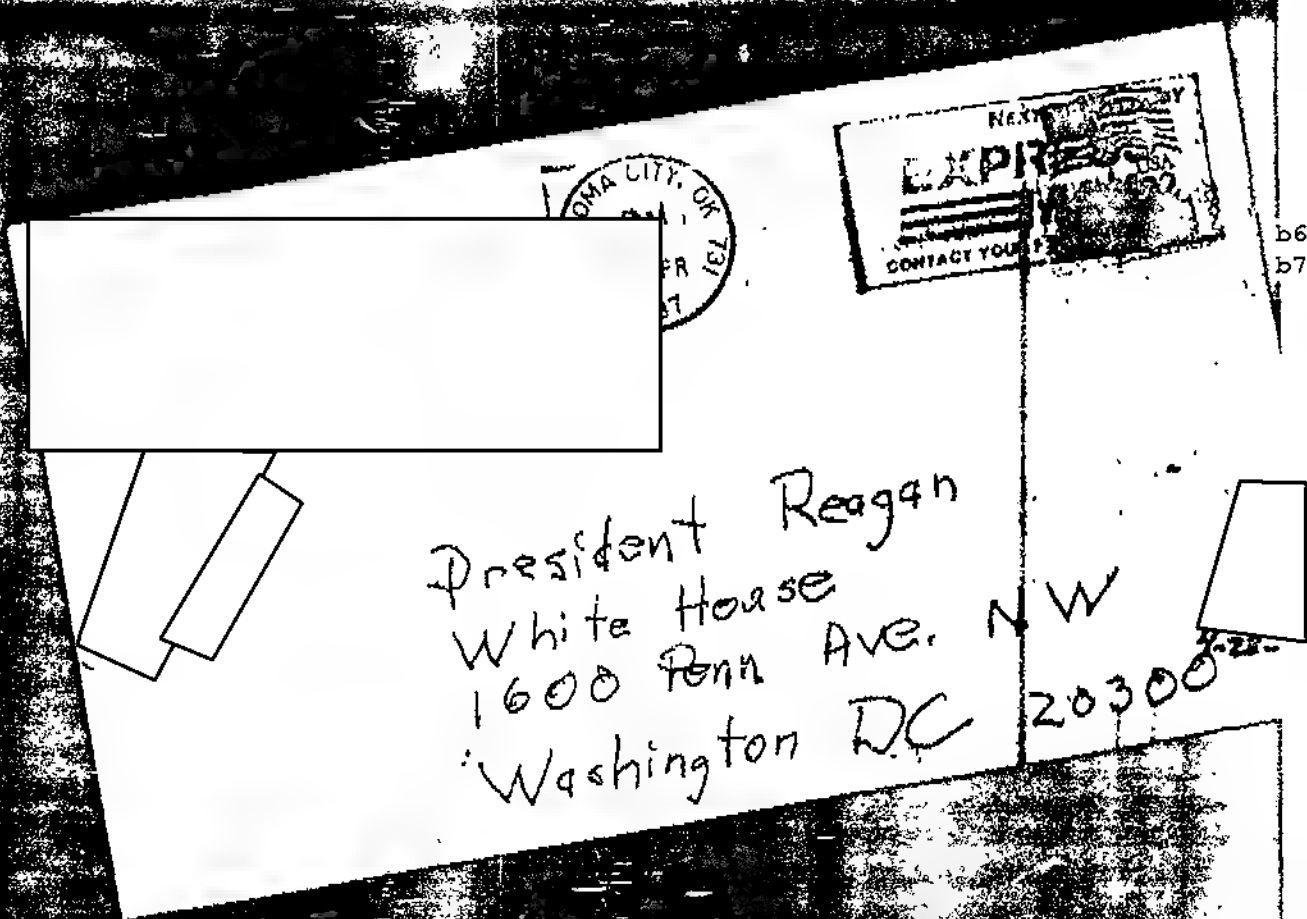 OMA CITY, OK 731
NEXT
EXPRE
CONTACT YOUR P
USA
b6
b7
President Reagan
White House
1600 Penn Ave. NW
Washington D.C 20300